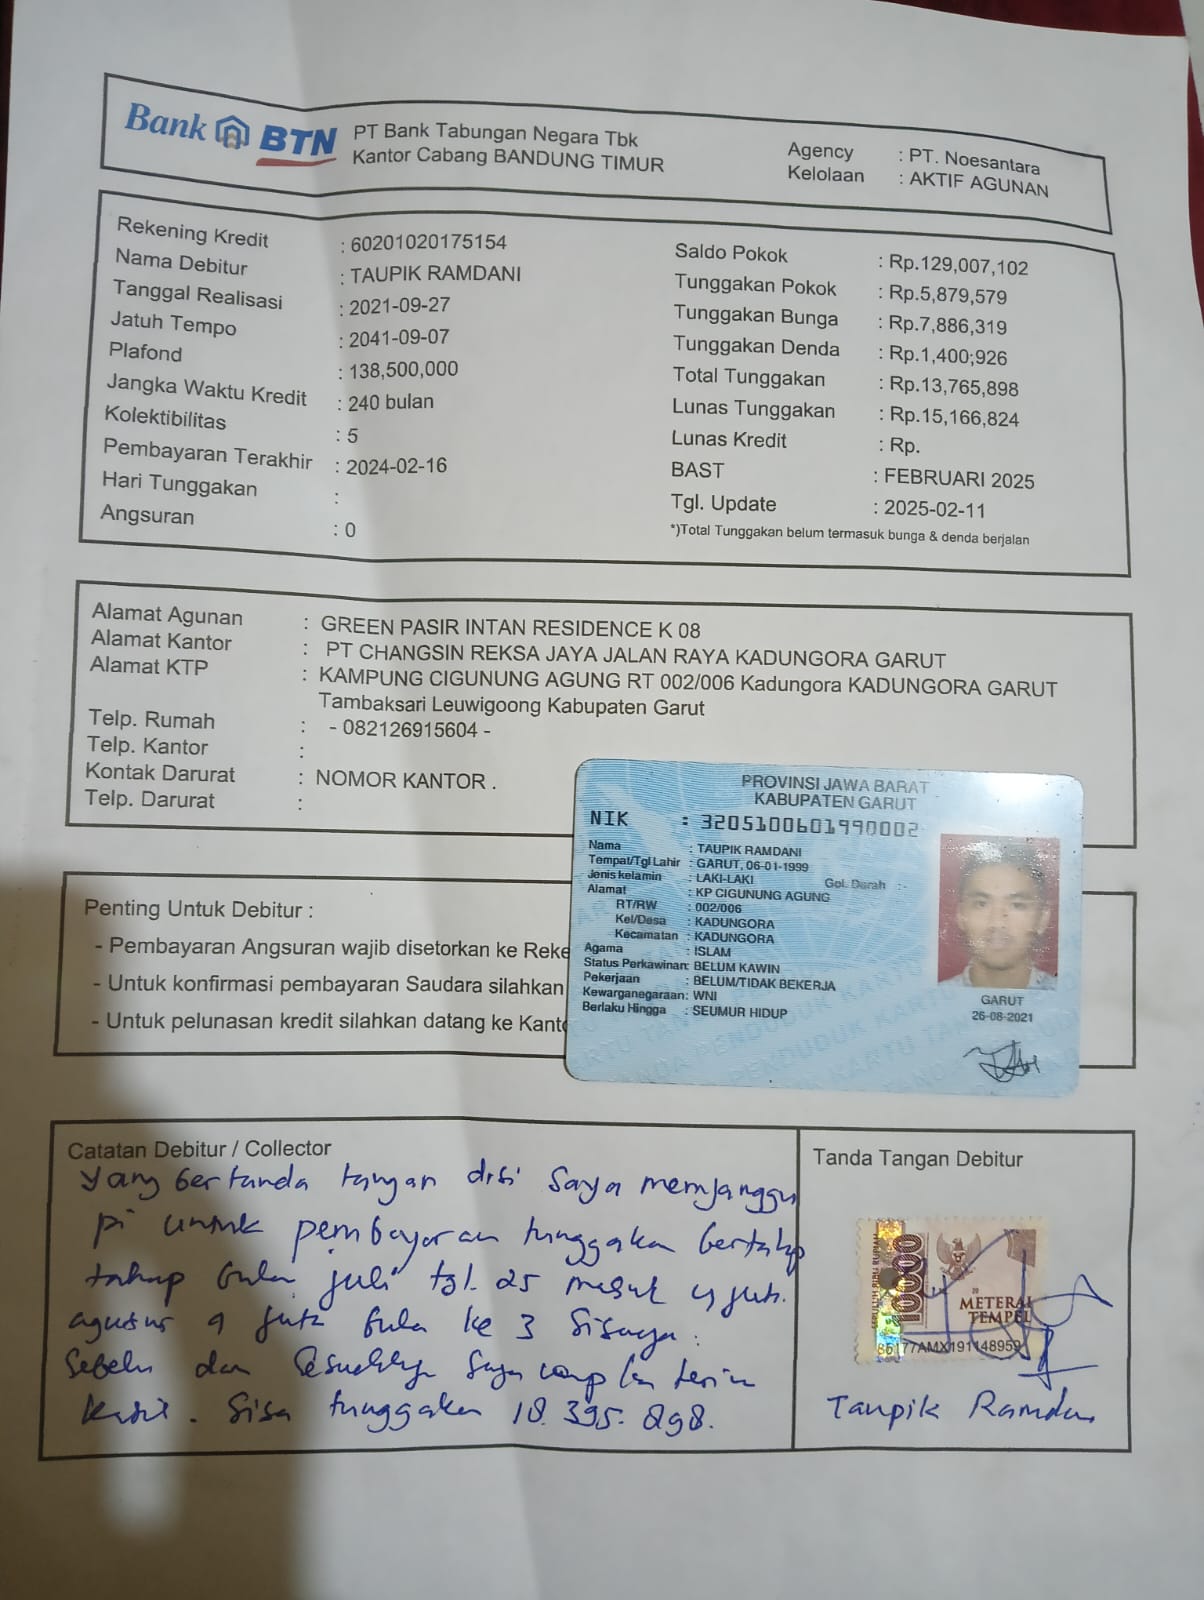 Bank BTN
PT Bank Tabungan Negara Tbk
Kantor Cabang BANDUNG TIMUR
Agency : PT. Noesantara
Kelolaan : AKTIF AGUNAN
Rekening Kredit : 60201020175154
Nama Debitur : TAUPIK RAMDANI
Tanggal Realisasi : 2021-09-27
Jatuh Tempo : 2041-09-07
Plafond : 138,500,000
Jangka Waktu Kredit : 240 bulan
Kolektibilitas : 5
Pembayaran Terakhir : 2024-02-16
Hari Tunggakan :
Angsuran : 0
Saldo Pokok : Rp.129,007,102
Tunggakan Pokok : Rp.5,879,579
Tunggakan Bunga : Rp.7,886,319
Tunggakan Denda : Rp.1,400;926
Total Tunggakan : Rp.13,765,898
Lunas Tunggakan : Rp.15,166,824
Lunas Kredit : Rp.
BAST : FEBRUARI 2025
Tgl. Update : 2025-02-11
*)Total Tunggakan belum termasuk bunga & denda berjalan
Alamat Agunan : GREEN PASIR INTAN RESIDENCE K 08
Alamat Kantor : PT CHANGSIN REKSA JAYA JALAN RAYA KADUNGORA GARUT
Alamat KTP : KAMPUNG CIGUNUNG AGUNG RT 002/006 Kadungora KADUNGORA GARUT
Tambaksari Leuwigoong Kabupaten Garut
Telp. Rumah : - 082126915604 -
Telp. Kantor :
Kontak Darurat : NOMOR KANTOR .
Telp. Darurat :
PROVINSI JAWA BARAT
KABUPATEN GARUT
NIK : 3205100601990002
Nama : TAUPIK RAMDANI
Tempat/Tgl Lahir : GARUT, 06-01-1999
Jenis kelamin : LAKI-LAKI Gol. Darah : -
Alamat : KP CIGUNUNG AGUNG
RT/RW : 002/006
Kel/Desa : KADUNGORA
Kecamatan : KADUNGORA
Agama : ISLAM
Status Perkawinan: BELUM KAWIN
Pekerjaan : BELUM/TIDAK BEKERJA
Kewarganegaraan: WNI
Berlaku Hingga : SEUMUR HIDUP
GARUT
26-08-2021
Penting Untuk Debitur :
- Pembayaran Angsuran wajib disetorkan ke Reke
- Untuk konfirmasi pembayaran Saudara silahkan
- Untuk pelunasan kredit silahkan datang ke Kanto
Catatan Debitur / Collector
yang bertanda tangan disi Saya menyanggu
pi untuk pembayaran tunggakan bertahap
tahap bulan juli tgl. 25 masuk 4 juta.
agustus 9 juta bula ke 3 Sisaya.
Sebelu dan
. Sisa tunggakan 18.395.898.
Tanda Tangan Debitur
SEPULUH RIBU RUPIAH
10000
METERAI
TEMPEL
86177AMX191148959
Taupik Ramdan